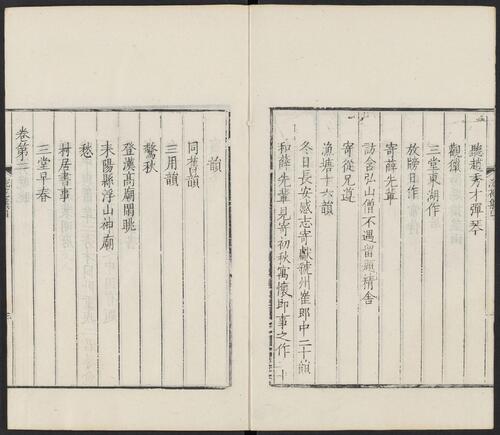 聽趙秀才彈琴
觀獵
三堂東湖作
放牓日作
寄薛先輩
訪含弘山僧不遇留題精舍
寄從兄遵
漁塘十六韻
冬日長安感志寄獻虢州崔郎中二十韻
和薛先輩見寄初秋寓懷即事之作二十
韻
同舊韻
三用韻
驚秋
登漢高廟閑眺
耒陽縣浮山神廟
愁
村居書事
三堂早春
卷第二